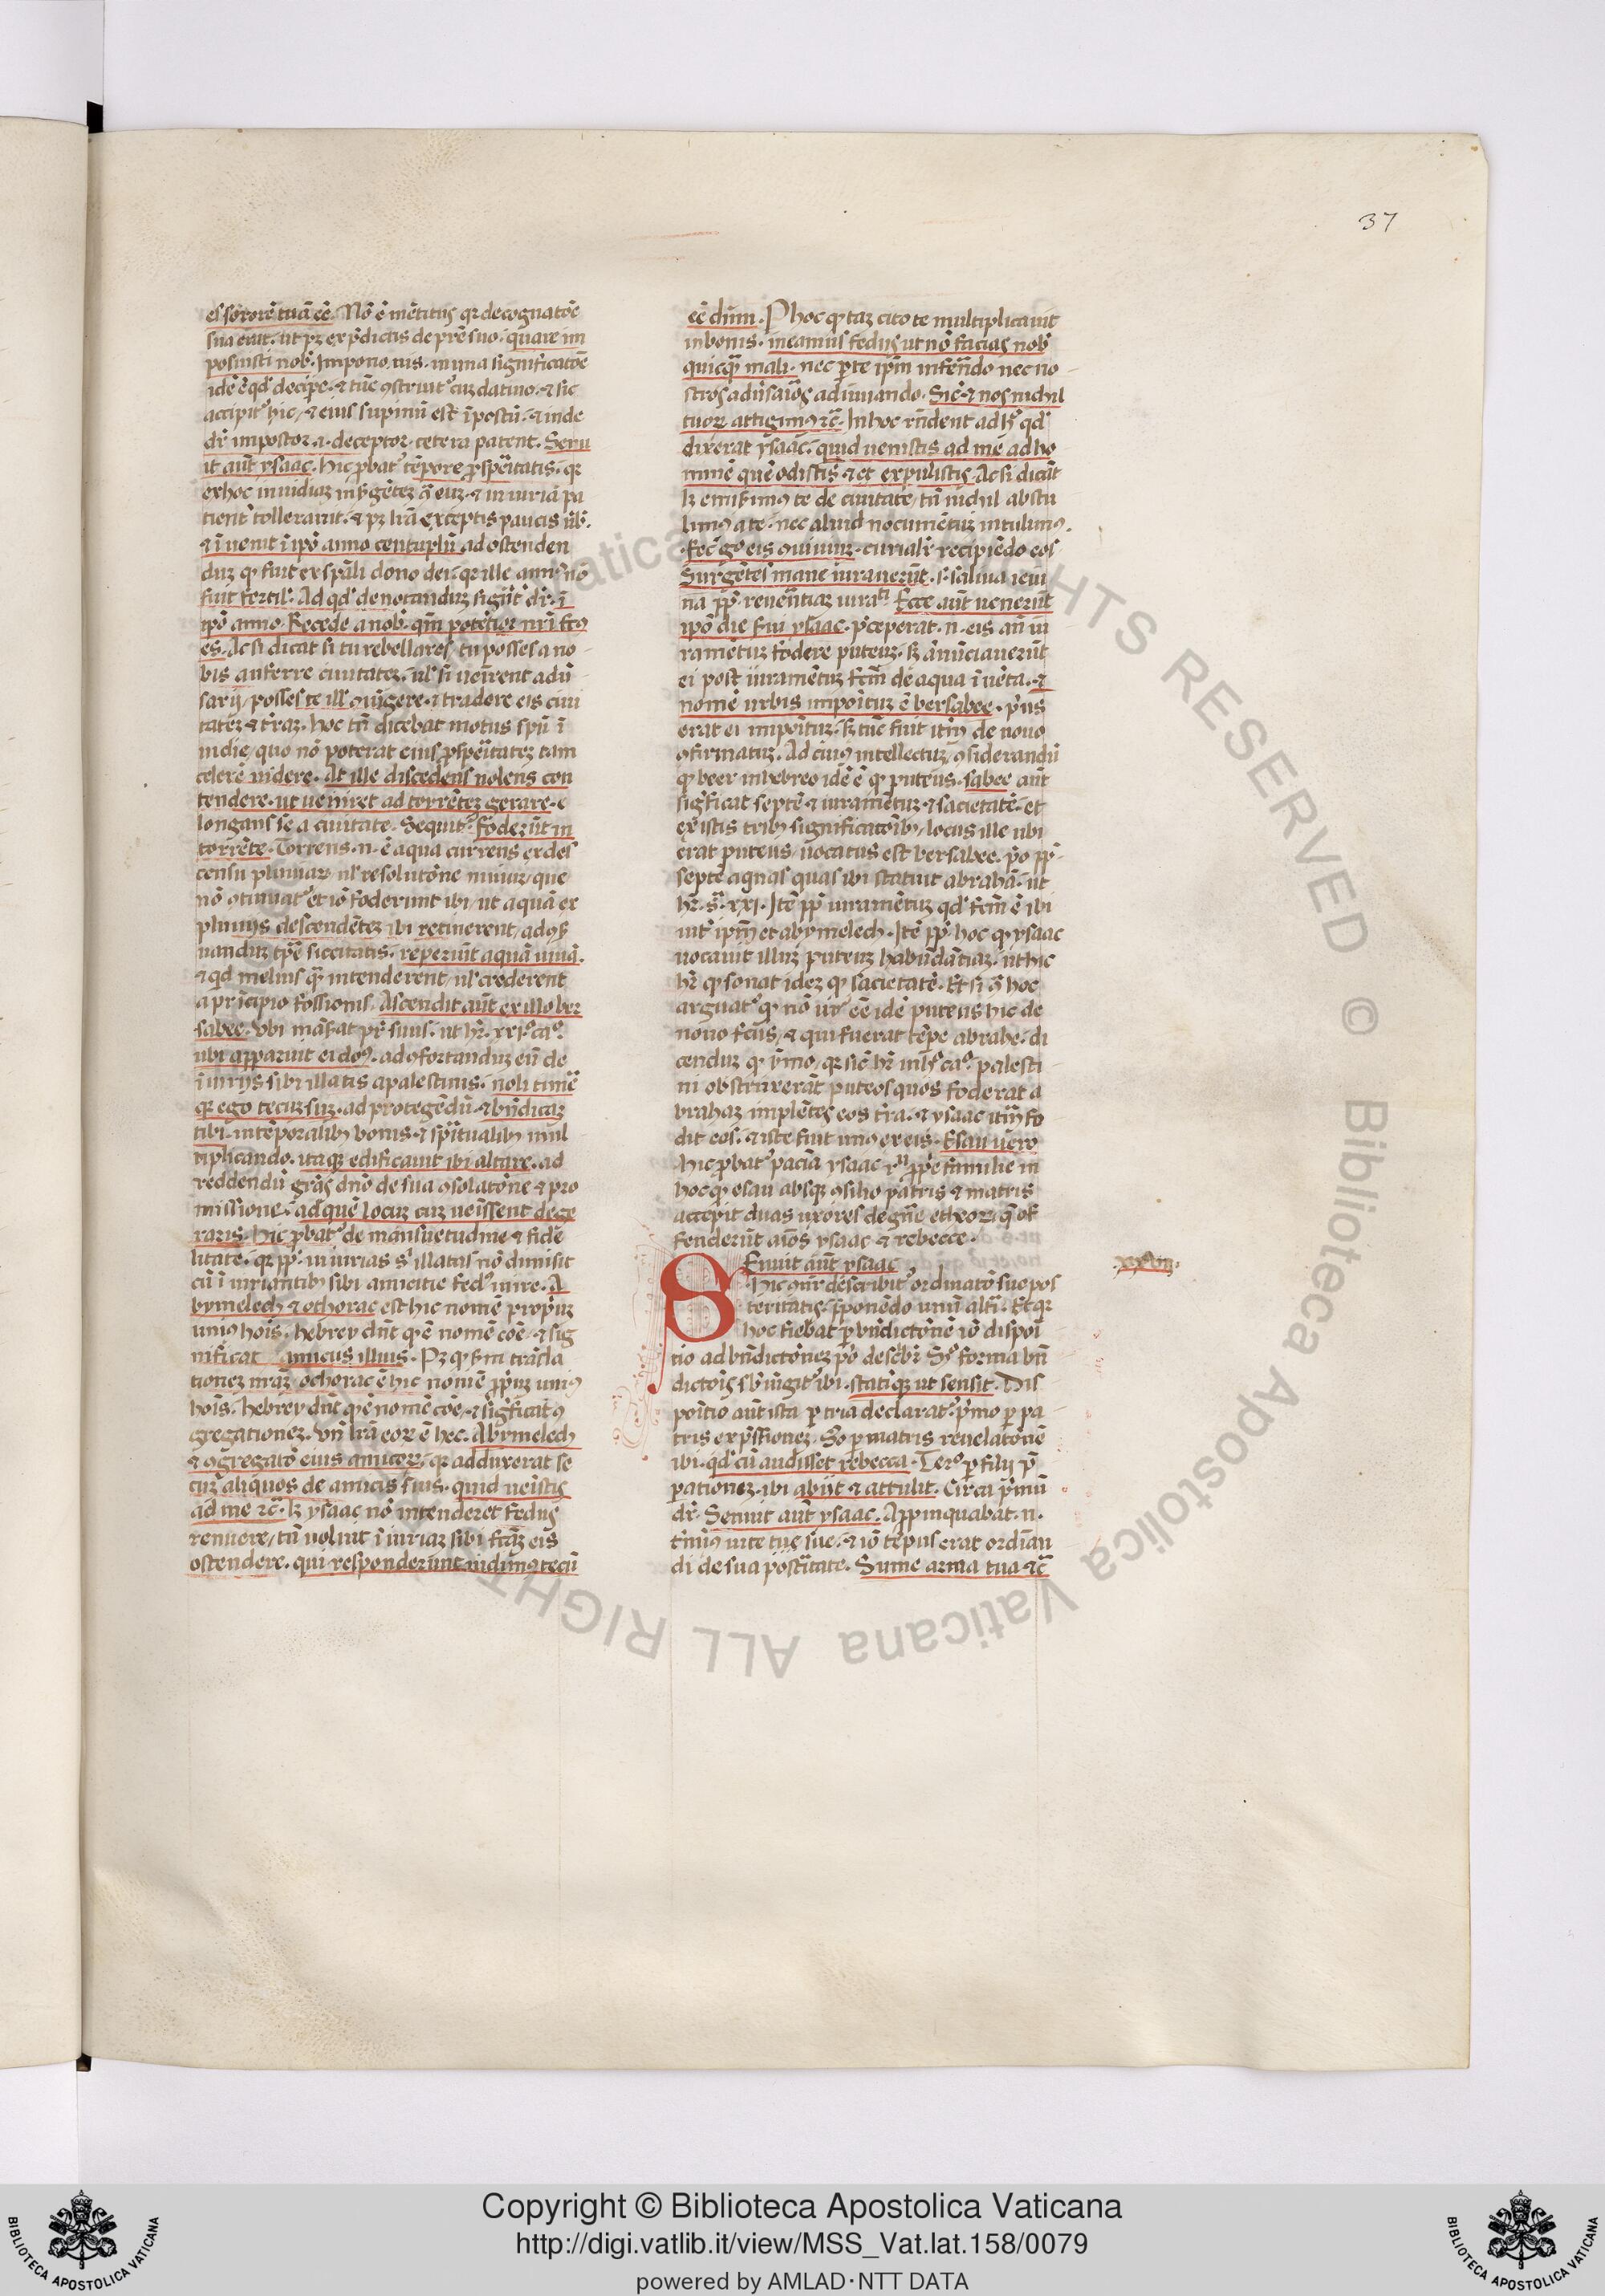 37
es sororē tuā eē. Nō ē mētitus qr de cognatōe
sua erat. ut pꝫ ex p̄dictis de pr̄e suo. quare im
posuisti nob̾. Impono, nis. in una significatōe
idē ē qd̾ decipe. ⁊ tūc ꝯstruit̾ cuꝫ datiuo. ⁊ sic
accipit̾ hic, ⁊ eius supinū est īpostū. ⁊ inde
dr̄ impostor .i. deceptor. cetera patent. Seru
it aūt ysaac. hic ꝓbat̾ tēpore ꝓsperitatis. qr
ex hoc inuidiaꝫ
tient̾ tollerauit. ⁊ pꝫ lr̄a exceptis paucis ūb̾.
⁊ īuenit ī ip̄o anno centuplū. ad ostenden
duꝫ ꝙ fuit ex sp̄ali dono dei. qr ille ann̾ nō
fuit fertil̾. Ad qd̾ denotanduꝫ dr̄. ī
ip̄o anno. Recede a nob̾. qm̄ potētior nr̄i fc̄us
es. Ac si dicat si tu rebellares tu posses a no
bis auferre ciuitateꝫ. ul̾ si uenirent adū
sarij, posses te ill̾ ꝯiūgere. ⁊ tradere eis ciui
tateꝫ ⁊ tr̄aꝫ. hoc tn̄ dicebat motus sp̄u ī
uidie, quo nō poterat eius ꝓsperitateꝫ tam
celerē uidere. At ille discedens nolens con
tendere. ut ueniret ad torrēteꝫ gerare. e
longans se a ciuitate. Sequit̾. foderūt in
torrēte. Torrens .n. ē aqua currens ex des
censu pluuiaꝝ ul̾ resolutōne niuiuꝫ, que
nō ꝯtinuat̾ et iō foderunt ibi, ut aquā ex
pluuijs descendēteꝫ ibi retinerent, ad ꝯẜ
uanduꝫ tp̄e siccitatis. reperūt aquā uiuā.
⁊ qd̾ melius qm̄ intenderent, ul̾ crederent
a principio fossionis. Ascendit aūt ex illo ber
sabee. Vbi māserat pr̄ suus. ut hr̄. xxi.º caº.
ubi apparuit ei dn̄s. ad ꝯfortanduꝫ eū de
īiurijs sibi illatis a palestinis. noli timē
qr ego tecuꝫ suꝫ. ad protegēdū. ⁊ bn̄dicaꝫ
tibi. in tēporalibꝫ bonis. ⁊ sp̄itualibꝫ mul
tiplicando. itaqꝫ edificauit ibi altare. ad
reddendū grās dn̄o de sua ꝯsolatōne ⁊ pro
missione. ad quē locuꝫ cuꝫ uenissent de ge
raris. hic ꝓbat̾ de mansuetudine ⁊ fide
litate. qr ꝓp̄ iniurias s̾ illatas nō dimisit
cū īiuriantibꝫ sibi amicitie fed̾ inire. A
bymelech ⁊ ochoraꝫ est hic nomē propriuꝫ
uni̾ hoīs. hebrey dn̄t ꝙ ē nomē coē, ⁊ sig
nificat amicus illius. Pꝫ ꝙ ẜm trāsla
tioneꝫ nr̄aꝫ ochoraꝫ ē hic nomē ꝓp̄uꝫ uni̾
hoīs. hebrey dn̄t ꝙ ē nomē coē, ⁊ sig̾ficat ꝯ
gregationeꝫ. Vn̄ lr̄a eoꝝ ē hec. Abymelech
⁊ ꝯgregatō eius amicoꝝ. qr adduxerat se
cuꝫ aliquos de amicis suis. quid uenistis
ad me ⁊c̄. lꝫ ysaac nō intenderet fedus
renuere, tn̄ uoluit īiuriaꝫ sibi fc̄aꝫ eis
ostendere. qui responderunt uidim̾ tecū
eē dn̄m. P hoc ꝙ taꝫ cito te multiplicauit
in bonis. ineamus fedus ut nō facias nob̾
quicqm̄ mali. nec p te ip̄m infērēdo nec no
stros adūsarios adiuuando. Sic̄ ⁊ nos nichil
tuoꝝ attigim̾ ⁊c̄. In hoc rn̄dent ad h̾ qd̾
dixerat ysaac. quid uenistis ad me ad ho
minē quē odistis ⁊ expulistis. Ac si dicāt
lꝫ emiserim̾ te de ciuitate, tn̄ nichil abstu
lim̾ a te. nec aliud nocumētuꝫ intulim̾.
fec̄ g̾ eis ꝯuiuiuꝫ. curialr̄ recipiēdo eos
Surgētes mane iurauerūt. s. salua
na ꝓp̄ reuerentiaꝫ Ecce aūt uenerūt
ip̄o die serui ysaac. p̄ceperat .n. eis an̄ iu
ramētuꝫ fodere puteuꝫ. sꝫ ānūciauerūt
ei post iuramētuꝫ fc̄m de aqua īuēta. ⁊
nomē urbis impositum ē bersabee. p̄us
erat ei impositum. sꝫ tūc fuit it̾m de nouo
ꝯfirmatuꝫ. Ad cui̾ intellectuꝫ, ꝯsiderandū
ꝙ beer in hebreo idē ē ꝙ puteus. sabee aūt
sig̾ficat septē ⁊ iuramētuꝫ. ⁊ sacietatē. et
ex istis tribꝫ significatōibꝫ, locus ille ubi
erat puteus, uocatus est bersabee. p̾o ꝓp̄
septē agnas quas ibi statuit abrahā. ut
hr̄. s̾. xxi. Itē ꝓp̄ iuramētuꝫ qd̾ fc̄m ē ibi
int̾ ip̄m et abymelech. Itē ꝓp̄ hoc ꝙ ysaac
uocauit illuꝫ puteuꝫ habūdātiaꝫ. ut hic
hr̄ ꝙ sonat ideꝫ ꝙ sacietatē. Et si hoc
arguat̾ ꝙ nō ur̄ eē idē puteus hic de
nouo fc̄us, ⁊ qui fuerat tēpe abrahe. di
cenduꝫ ꝙ ymo, qr sic̄ hr̄ in h̾ caº. palesti
ni obstruxerāt puteos quos foderat a
brahaꝫ implētes eos tr̄a. ⁊ ysaac it̾m fo
dit eos. ⁊ iste fuit un̾ ex eis. Esau uero
hic ꝓbat̾ pacīa ysaac ꝓp̄e familie in
hoc ꝙ esau absqꝫ ꝯsilio patris ⁊ matris
accepit duas uxores de gn̄e etheoꝝ, q̄ of
fenderūt aīos ysaac ⁊ rebecce.
Senuit aūt ysaac
xxvij.
Hic ꝯn̄r describit̾ ordinatō sue pos
teritatis. p̄ponēdo unū alt̾i. Et qr
hoc fiebat p bn̄dictōnē iō dispoi
tio ad bn̄dictōneꝫ p̾o descbr̄. S̾ forma bn̄
dictōis sb̾iūgit̾ ibi. statiqꝫ ut sensit. Dis
poitio aūt ista p tria declarat̾. p̾mo p pa
tris exp̄ssioneꝫ. S̾o p matris reuelatōnē
ibi. qd̾ cū audisset rebecca. Ter̾o p filij p̄
pationeꝫ. ibi abijt ⁊ attulit. Circa p̾mū
dr̄. Senuit aūt ysaac. Appinquabat .n.
t̾mi̾ uite sue. ⁊ iō tēpus erat ordinan
di de sua posteritate. Sume arma tua ⁊c̄
Copyright © Biblioteca Apostolica Vaticana
http://digi.vatlib.it/view/MSS_Vat.lat.158/0079
powered by AMLAD·NTT DATA
BIBLIOTECA APOSTOLICA VATICANA
BIBLIOTECA APOSTOLICA VATICANA
ALL RIGHTS RESERVED © Biblioteca Apostolica Vaticana